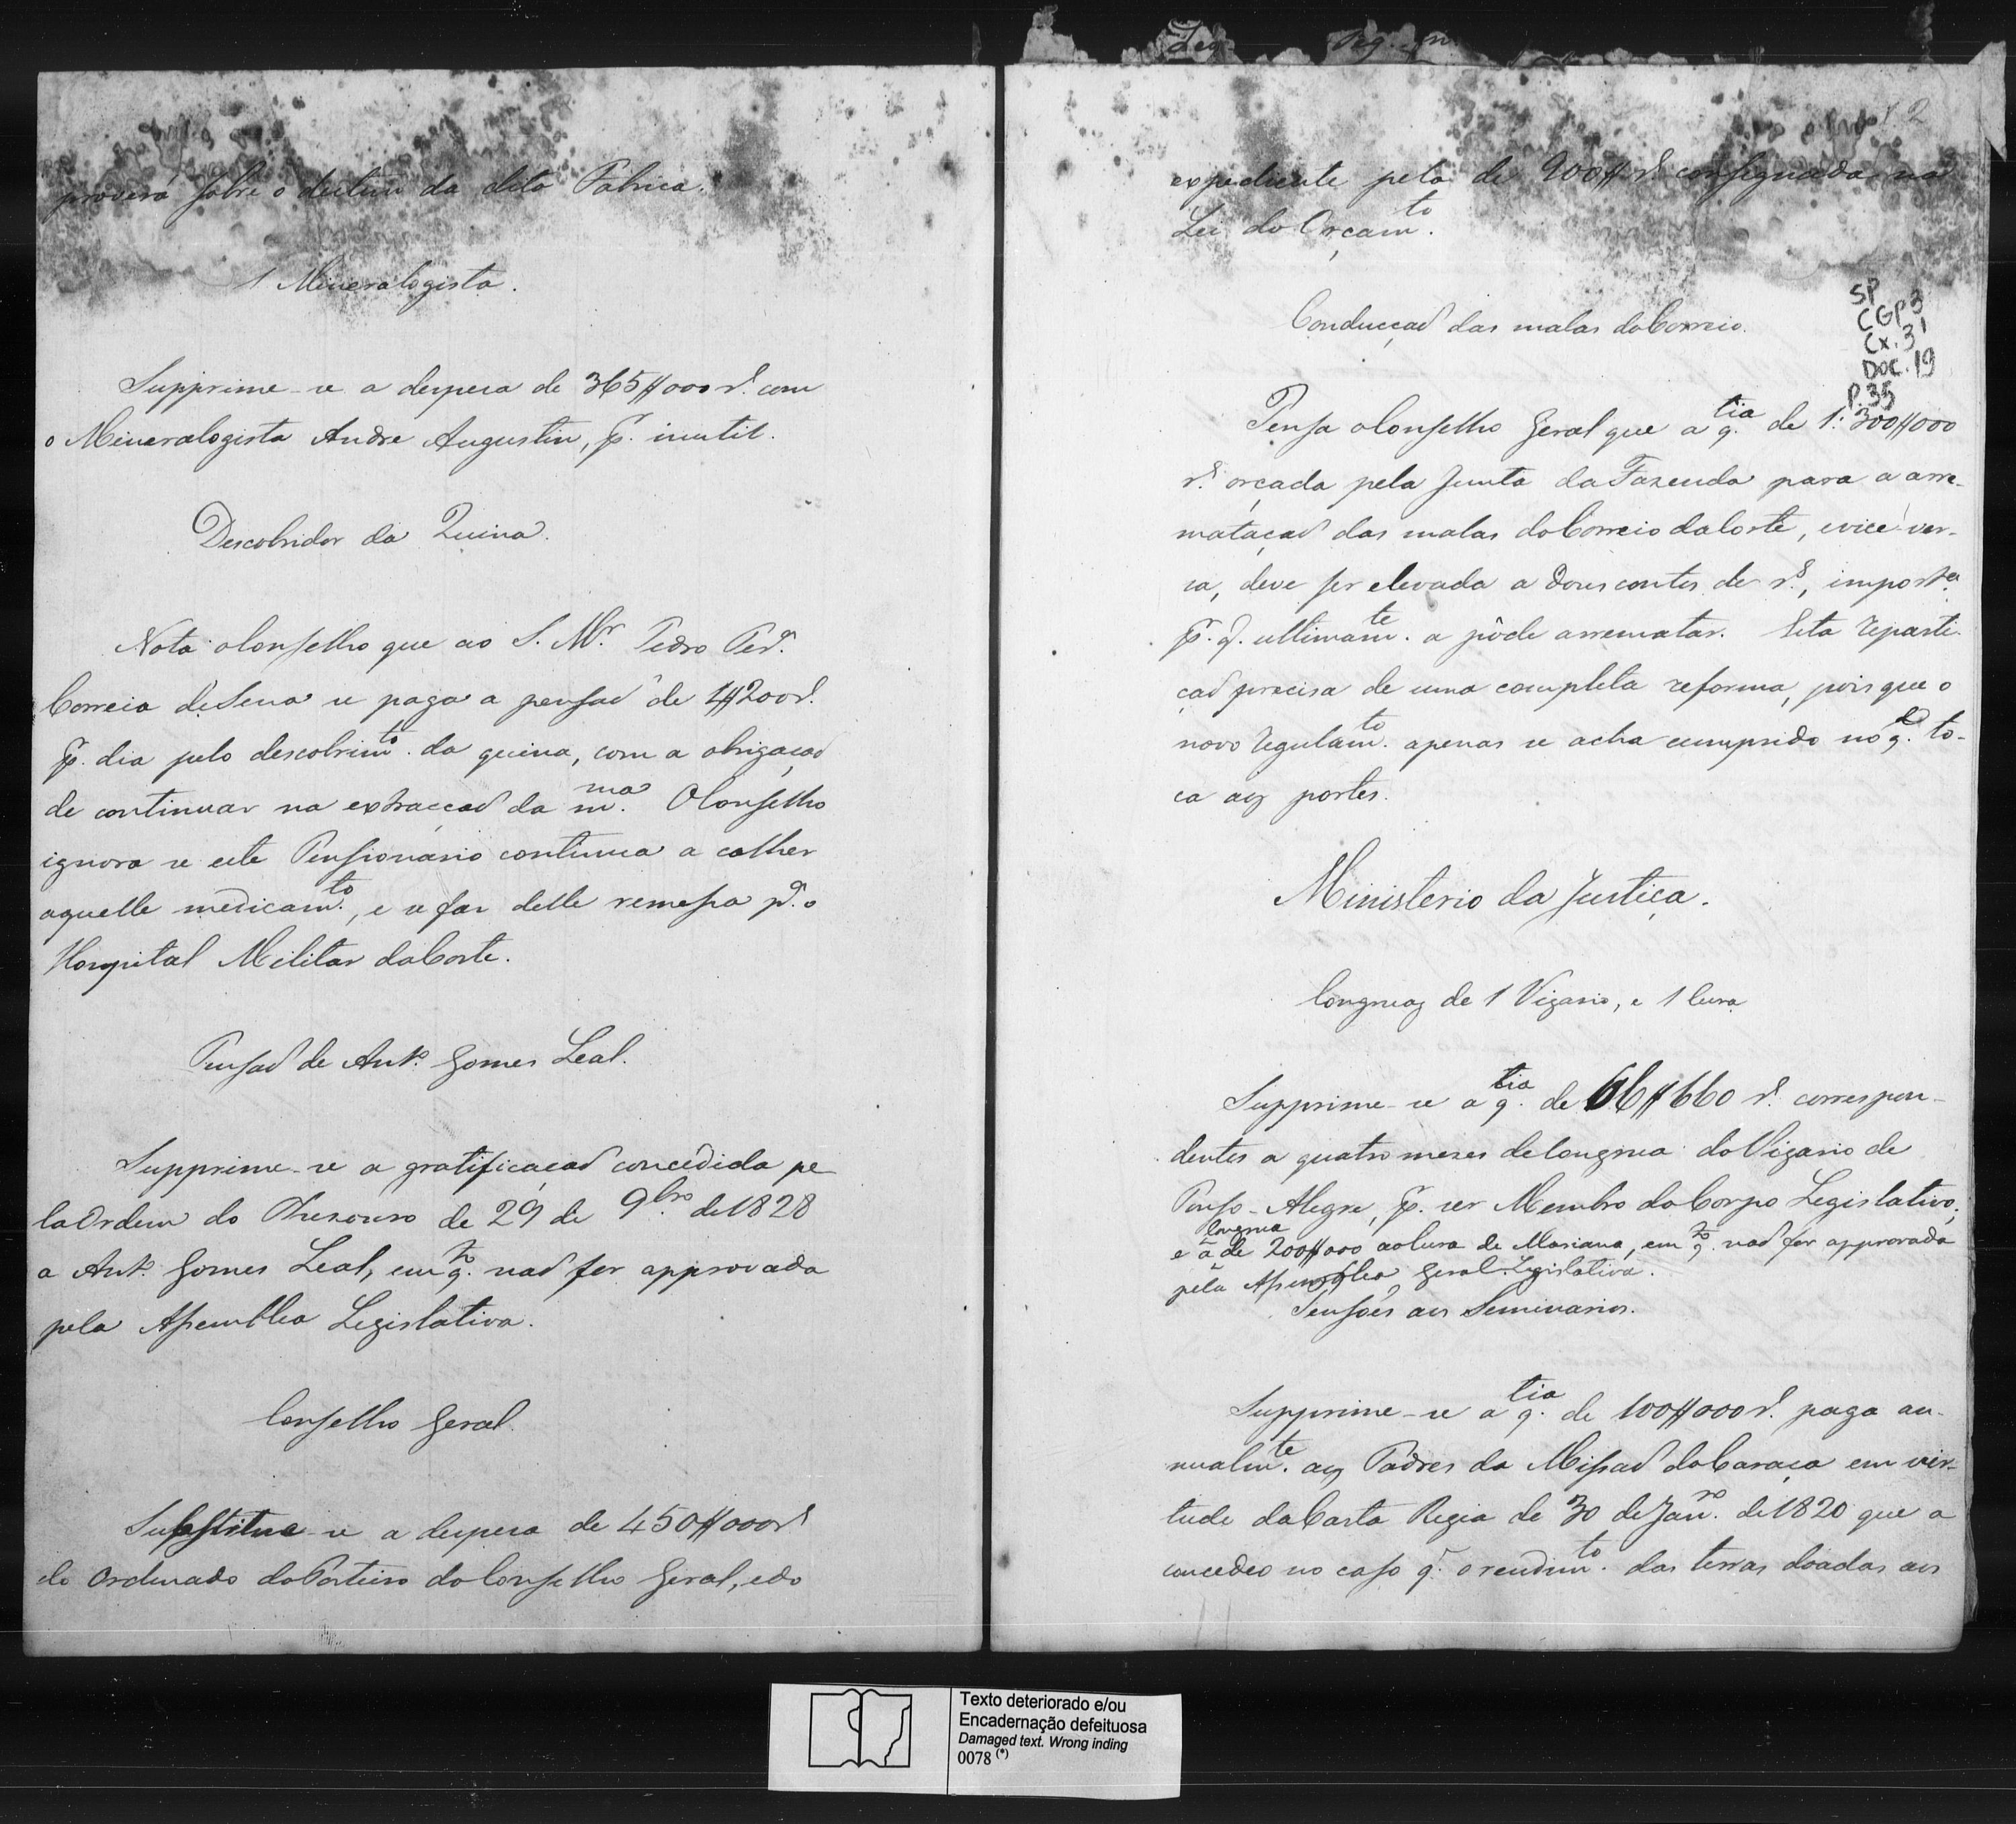 proverá sobre o destino da dita Fabrica.
1 Mineralogista.
Supprime-se a despesa de 365$000 rs. com
o Mineralogista Andre Augustin, p. inutil.
Descobridor da Quina.
Nota o Conselho que ao S. Mr. Pedro Per.ª
Correia de Sena se paga a pensaõ de 1$200 rs.
p. dia pelo descobrim.to da quina, com a obrigaçaõ
de continuar na extracçaõ da m.ma O Conselho
ignora se este Pensionario continua a colher
aquelle medicam.to, e se faz delle remessa p.ª o
Hospital Militar da Corte.
Pensaõ de Ant.º Gomes Leal.
Supprime-se a gratificaçaõ concedida pe
la Ordem do Thesouro de 29 de 9.bro de 1828
a Ant.º Gomes Leal, em q.to naõ for approvada
pela Assemblea Legislativa.
Conselho Geral.
Substitue-se a despesa de 450$000 rs
do Ordenado do Porteiro do Conselho Geral, e do
2
expediente pela de 900$ rs. consignada na
Lei do Orçam.to
SP
CGP3
Cx. 31
DOC. 19
P. 35
Conducçaõ das malas do Correio.
Pensa o Conselho Geral que a q.tia de 1:300$000
rs. orçada pela Junta da Fazenda para a arre-
mataçaõ das malas do Correio da Corte, e vice ver-
sa, deve ser elevada a dous contos de rs., import.ª
p. q. ultimam.te a pôde arrematar. Esta reparti-
çaõ precisa de uma completa reforma, pois que o
novo regulam.to apenas se acha cumprido no q. to-
ca aos portes.
Ministerio da Justiça.
Congruas de 1 Vigario, e 1 Cura
Supprime-se a q.tia de 66$660 rs. correspon-
dentes a quatro meses de Congrua do Vigario de
Pouso-Alegre, p. ser Membro do Corpo Legislativo;
e a Congrua de 200$000 ao Cura de Mariana, em q.to naõ for approvada
pela Assemblea Geral Legislativa.
Pensões aos Seminarios.
Supprime-se a q.tia de 100$000 rs. paga an-
nualm.te aos Padres da Missaõ do Caraça em vir-
tude da Carta Regia de 30 de Jan.ro de 1820 que a
concedeo no caso q. o rendim.to das terras doadas aos
Texto deteriorado e/ou
Encadernação defeituosa
Damaged text. Wrong inding
0078 (*)